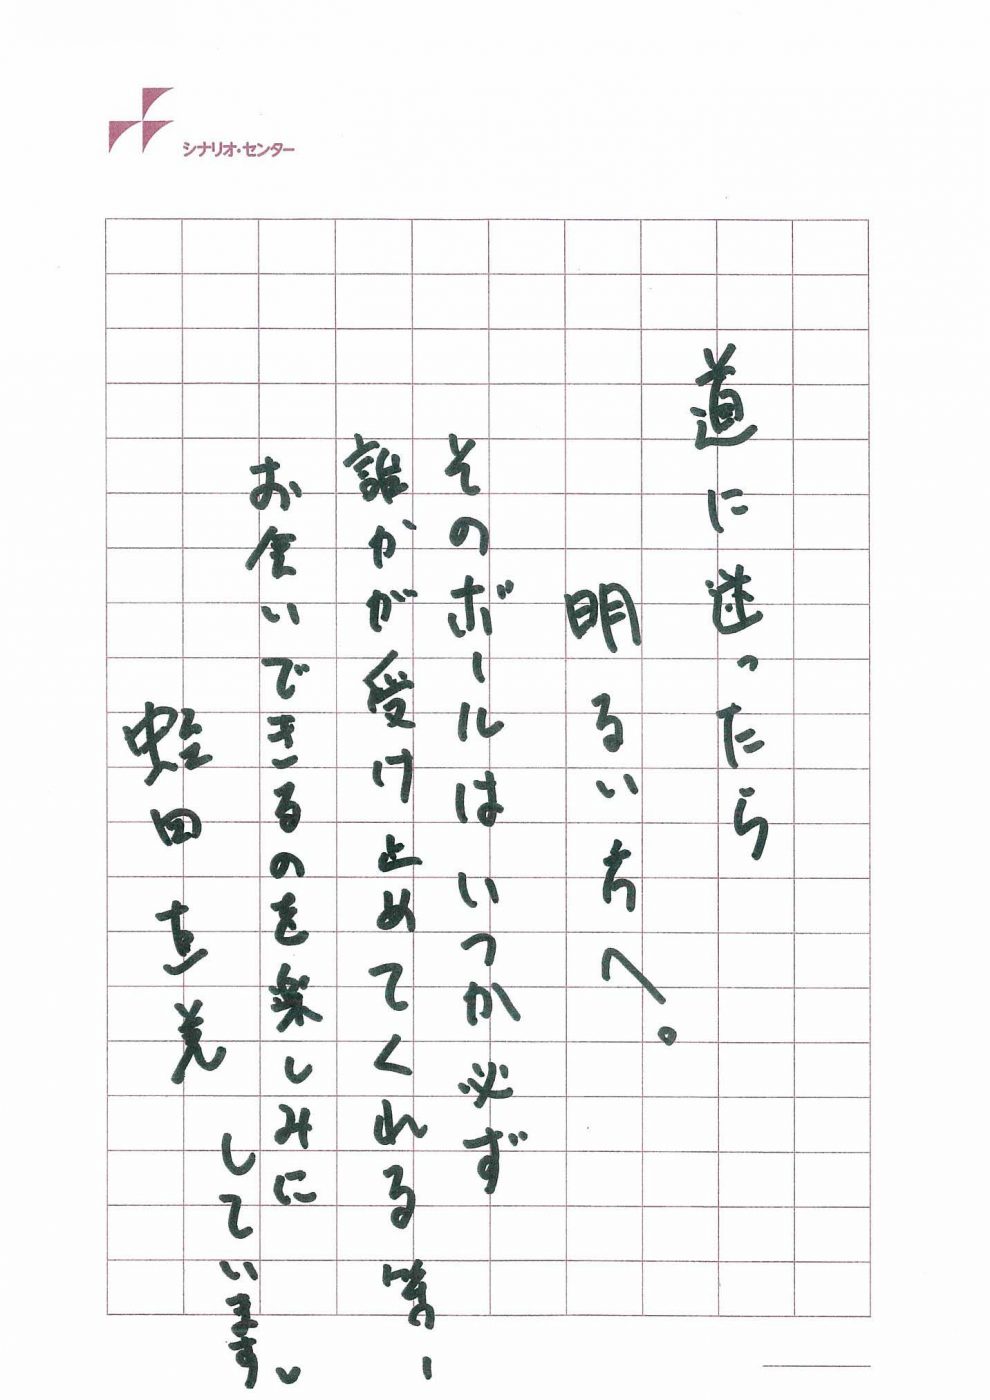 シナリオ・センター
道に迷ったら
明るい方へ。
そのボールはいつか必ず
誰かが受け止めてくれる筈ー
お会いできるのを楽しみに
しています。
蛭田直美